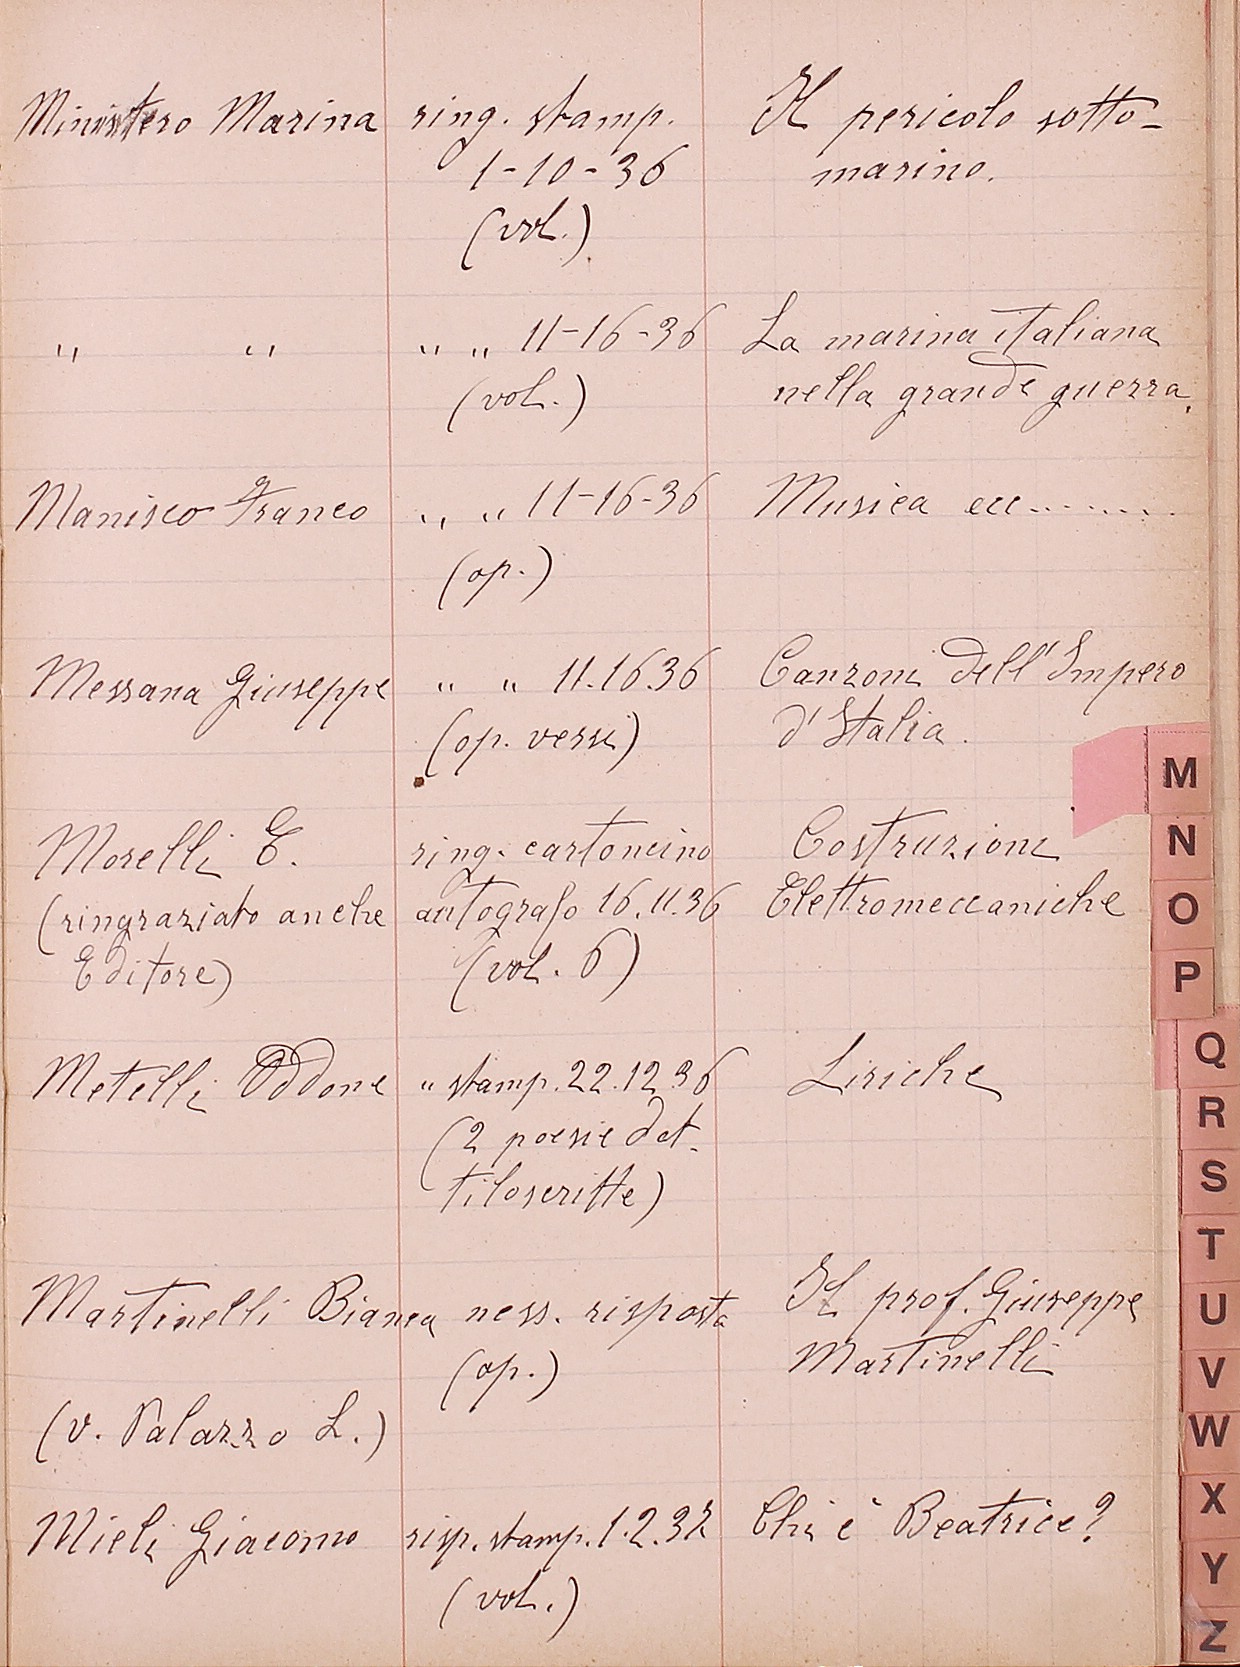 Ministero Marina ring. stamp. Il pericolo sotto-
1-10-36 marino.
(vol.)
" " " " 11-16-36 La marina italiana
(vol.) nella grande guerra.
Manisco Franco " " 11-16-36 Musica ecc........
(op.)
Messana Giuseppe " " 11.16.36 Canzoni dell'Impero
(op. versi) d'Italia.
Morelli E. ring. cartoncino Costruzioni
(ringraziato anche autografo 16.11.36 Elettromeccaniche
Editore) (vol. 6)
Metelli Oddone " stamp. 22.12.36 Liriche
(2 poesie dat-
tiloscritte)
Martinelli Bianca ness. risposta Il prof. Giuseppe
(op.) Martinelli
(v. Palazzo L.)
Mieli Giacomo risp. stamp. 1.2.37 Chi è Beatrice?
(vol.)
M
N
O
P
Q
R
S
T
U
V
W
X
Y
Z